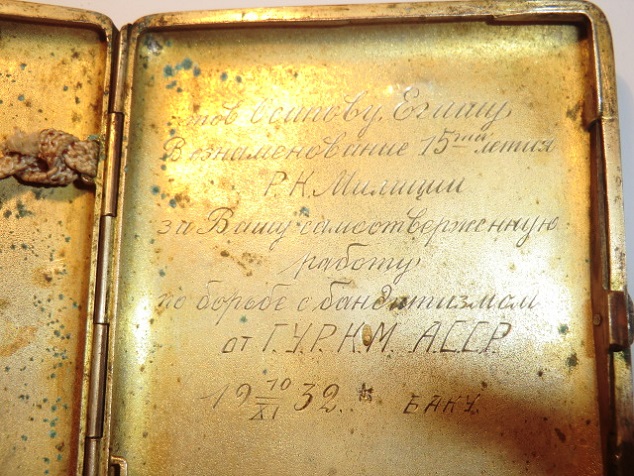 тов Осипову, Егишу,
В ознаменование 15тилетия
Р.К. Милиции
за Вашу самоотверженную
работу
по борьбе с бандитизмом
от Г.У.Р.К.М. АССР.
19 10/XI 32. БАКУ.